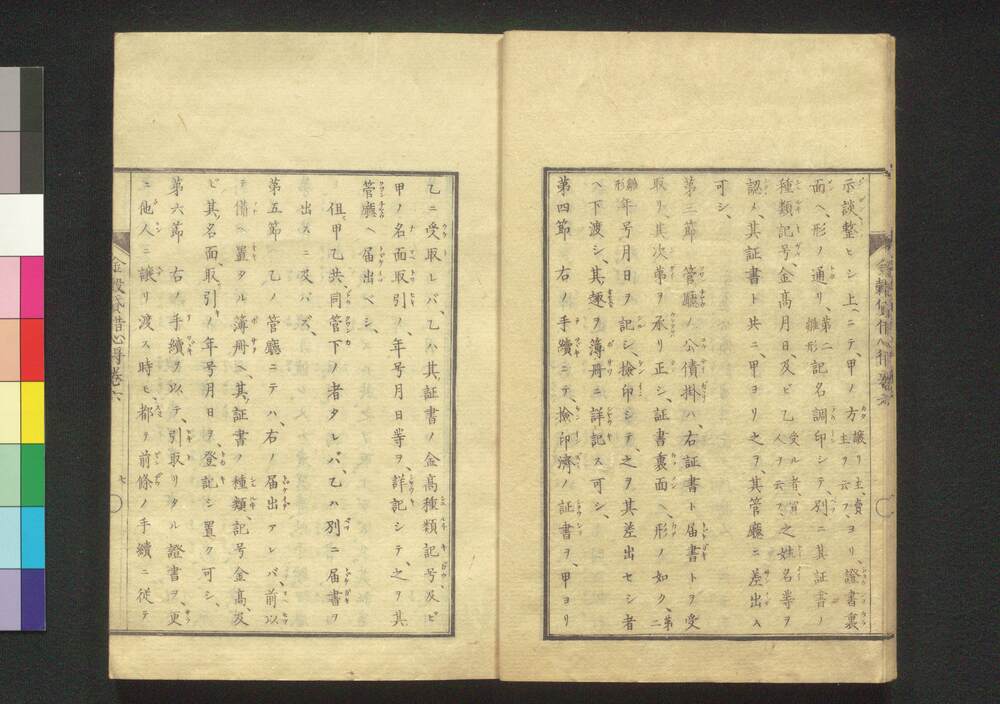 示談整ヒシ上ニテ、甲ノ方譲リ主、賣主ヲ云フ、ヨリ、證書裏
面ヘ、形ノ通リ、第二雛形記名調印シテ、別ニ其証書ノ
種類記号、金髙月日、及ビ乙受ル者、買人ヲ云フ、之姓名等ヲ
認メ、其証書ト共ニ、甲ヨリ之ヲ、其管廳ニ差出ス
可シ、
第三節　管廳ノ公債掛ハ、右証書ト届書トヲ受
取リ、其次第ヲ承リ正シ、証書裏面ヘ、形ノ如ク、第二
雛形年号月日ヲ記シ、撿印シテ、之ヲ其差出セシ者
ヘ下渡シ、其趣ヲ簿冊ニ詳記ス可シ、
第四節　右ノ手續ニテ、撿印濟ノ証書ヲ、甲ヨリ
乙ニ受取レバ、乙ハ其証書ノ金髙種類記号及ビ
甲ノ名面取引ノ、年号月日等ヲ、詳記シテ、之ヲ其
管廳ヘ届出ベシ、
但甲乙共、同管下ノ者タレバ、乙ハ別ニ届書ヲ
出スニ及バズ、
第五節　乙ノ管廳ニテハ、右ノ届出アレバ、前以
テ備ヘ置タル簿冊ヘ、其証書ノ種類、記号金髙及
ビ其名面、取引ノ年号月日ヲ、登記シ置ク可シ、
第六節　右ノ手續ヲ以テ、引取リタル證書ヲ、更
ニ他人ニ譲リ渡ス時モ、都テ前條ノ手續ニ従テ
金穀貸借心得巻六